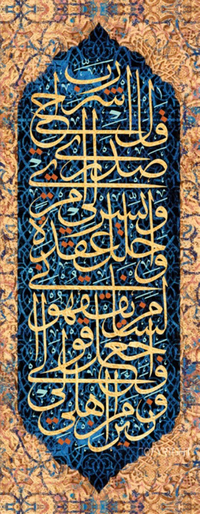 قال رب اشرح
لي صدري
ويسر لي أمري
واحلل عقدة
من لساني يفقهوا
قولي واجعل لي
وزيرا من أهلي